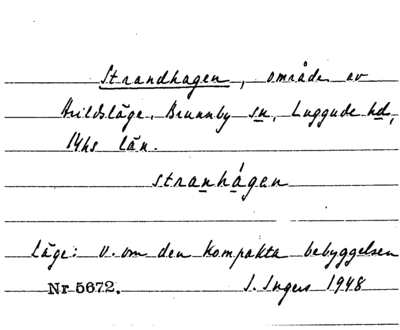 Strandhagen, område av
Arildsläge, Brunnby sn, Luggude hd,
Mhs län.
stranhágen
Läge: v. om den kompakta bebyggelsen
Nr 5672. I. Ingers 1948